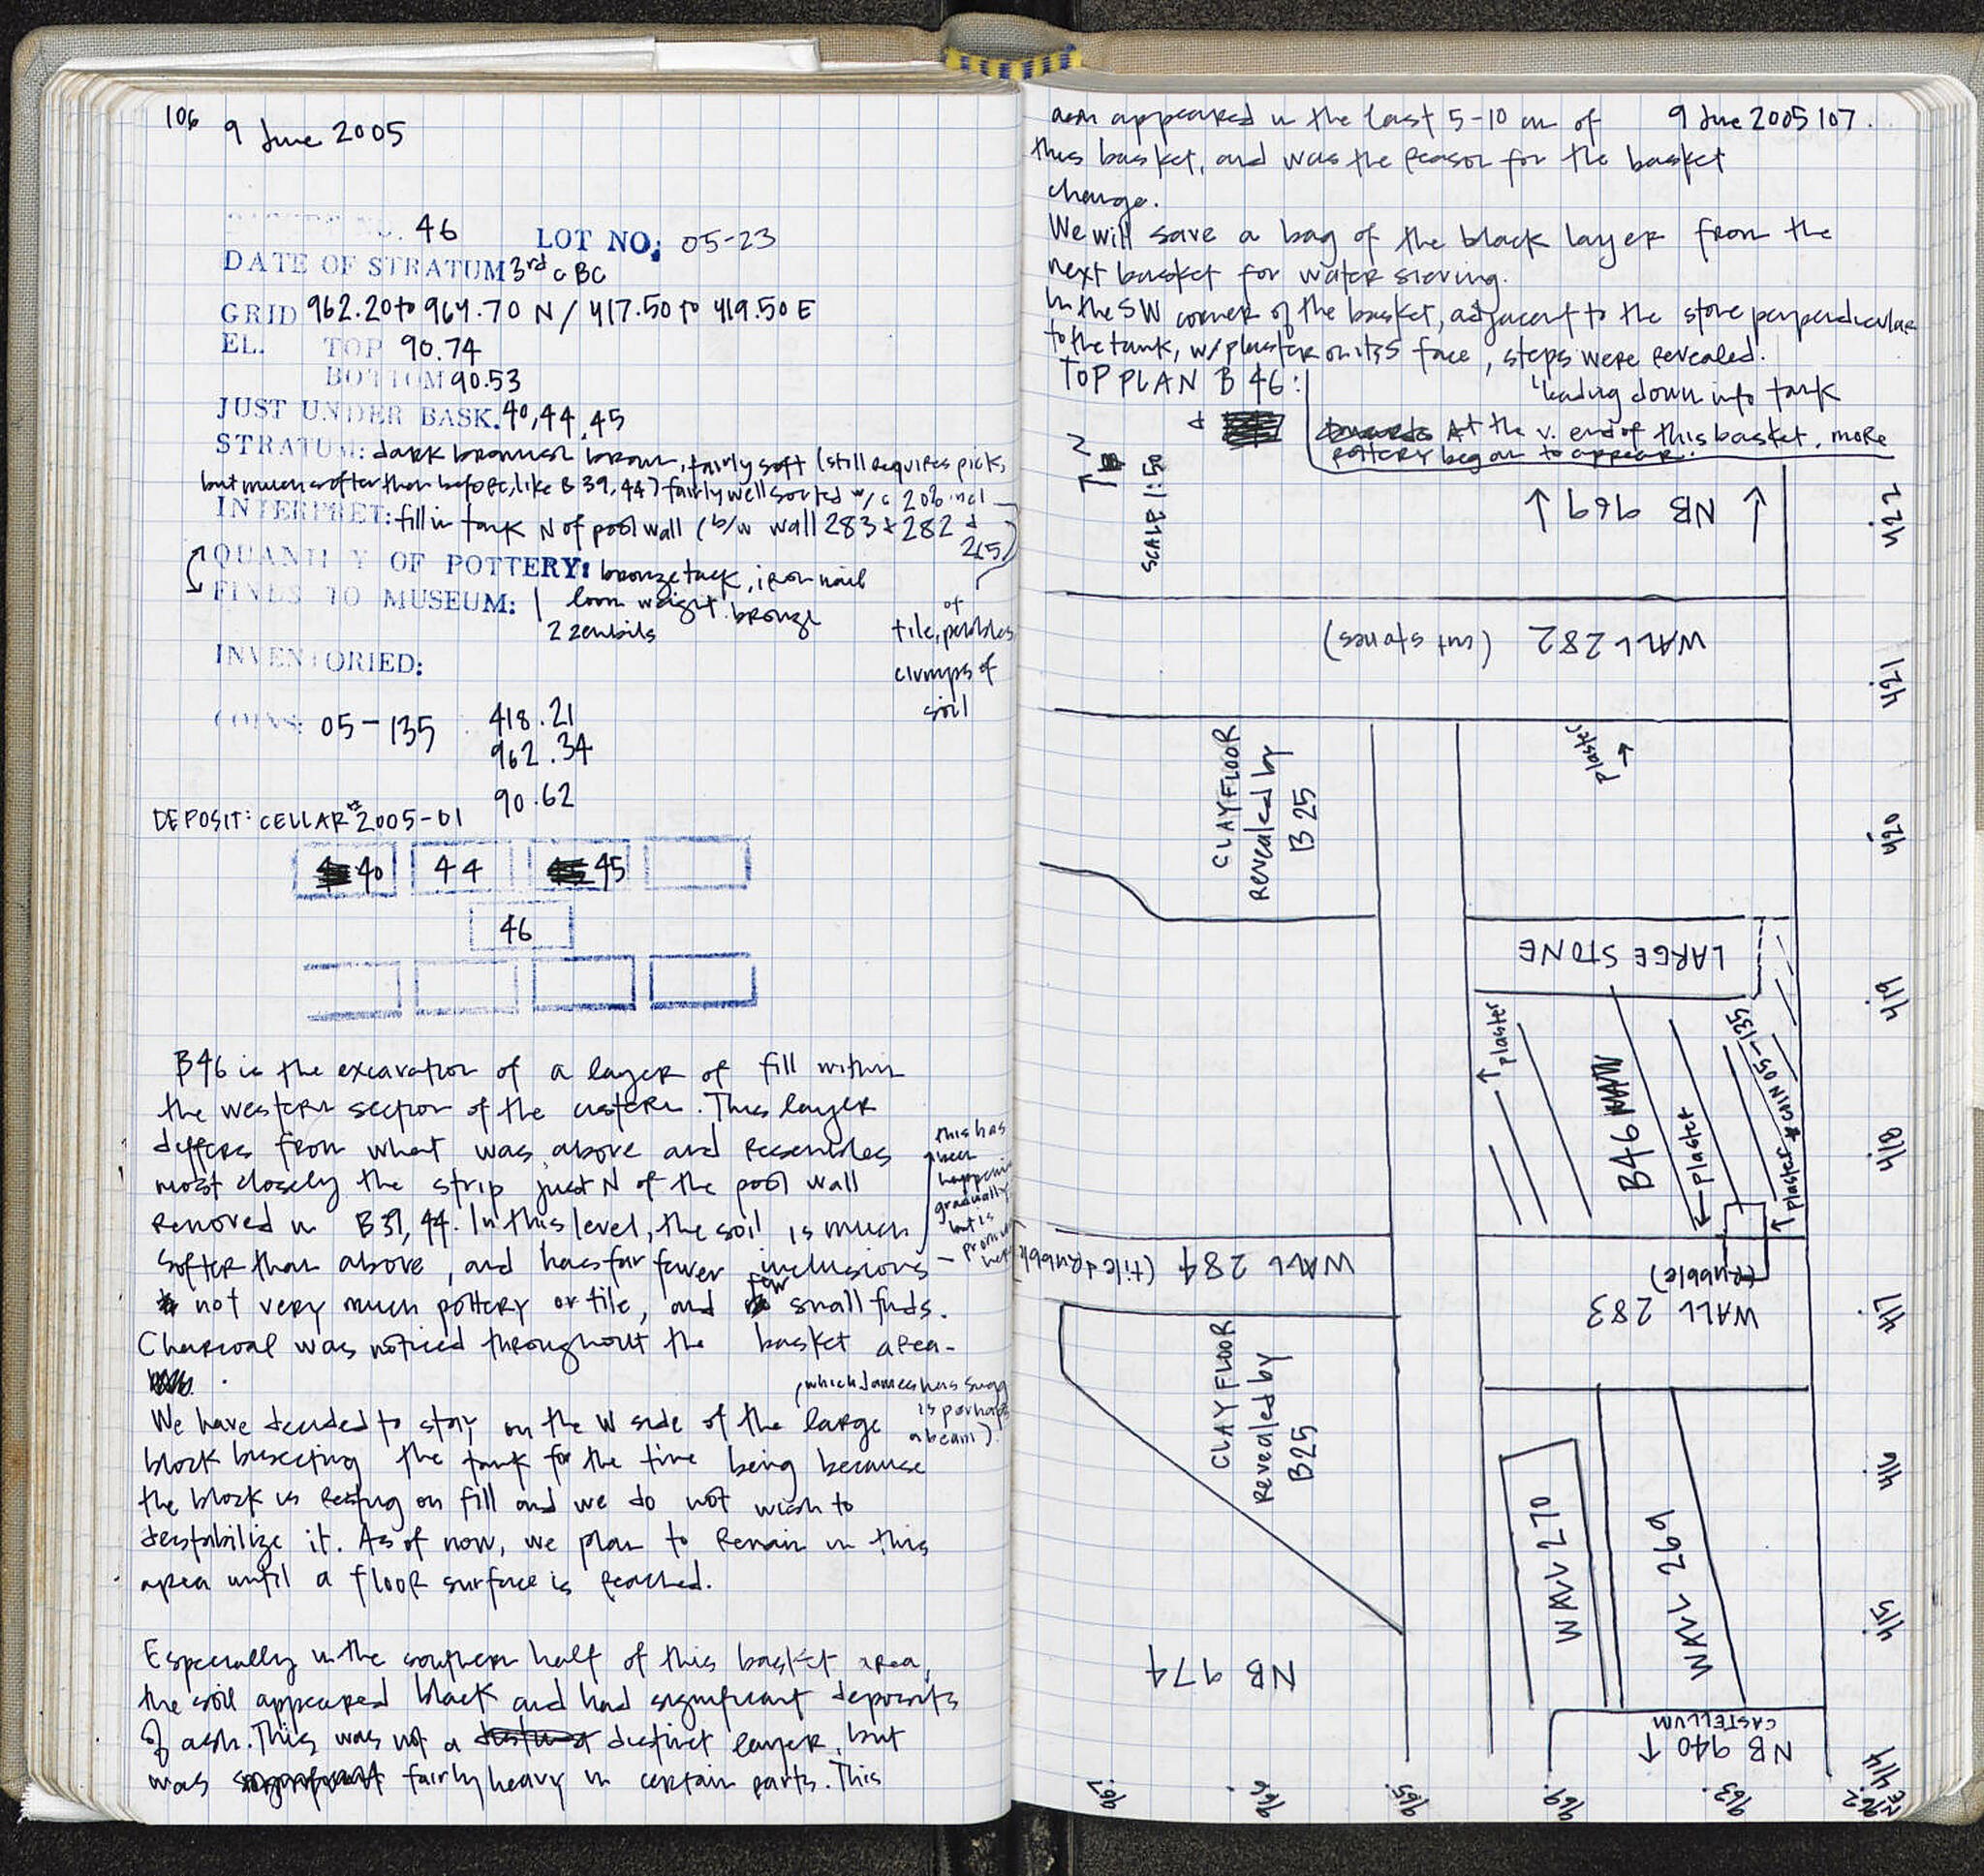 106
9 June 2005
46 LOT NO. 05-23
DATE OF STRATUM 3rd c BC
GRID 962.20 to 964.70 N / 417.50 to 419.50 E
EL. TOP 90.74
BOTTOM 90.53
JUST UNDER BASK. 40, 44, 45
STRATUM: dark brownish brown, fairly soft (still requires pick,
but much softer than before, like B 39, 44) fairly well sorted w/ c 20% incl
INTERPRET: fill in tank N of pool wall (b/w wall 283 + 282 +
265)
QUANTITY OF POTTERY: bronze tack, iron nail
FINDS TO MUSEUM: 1 loom weight. bronze
2 zembils
of
tile, pebbles,
clumps of
soil
INVENTORIED:
COINS: 05-135 418.21
962.34
90.62
DEPOSIT: CELLAR # 2005-01
40 44 45
46
B46 is the excavation of a layer of fill within
the western section of the cistern. This layer
differs from what was above and resembles
most closely the strip just N of the pool wall
removed in B39, 44. In this level, the soil is much
softer than above, and has far fewer inclusions –
not very much pottery or tile, and few small finds.
this has
been
happening
gradually
but is
Charcoal was noticed throughout the basket area.
We have decided to stay on the W side of the large
(which James has sugg
is perhaps
a beam).
block bisecting the tank for the time being because
the block is resting on fill and we do not wish to
destabilize it. As of now, we plan to remain in this
area until a floor surface is reached.
Especially in the southern half of this basket area,
the soil appeared black and had significant deposits
of ash. This was not a distinct layer, but
was fairly heavy in certain parts. This
9 June 2005 107.
ash appeared in the last 5-10 cm of
this basket, and was the reason for the basket
change.
We will save a bag of the black layer from the
next basket for water sieving.
In the SW corner of the basket, adjacent to the stone perpendicular
to the tank, w/ plaster on its S face, steps were revealed.
leading down into tank
TOP PLAN B 46:
At the v. end of this basket, more
pottery began to appear.
N
SCALE 1:50
↑ NB 969 ↑
WALL 282 (cut stones)
CLAY FLOOR
revealed by
B 25
plaster →
LARGE STONE
↑ plaster
B46
← plaster
COIN 05-135
↑ plaster
WALL 284 (tile & rubble)
WALL 283
(rubble)
CLAY FLOOR
revealed by
B25
WALL 270
WALL 269
NB 974
NB 940 ↑
CASTELLUM
422
421
420
419
418
417
416
415
414
967
966
965
964
963
962